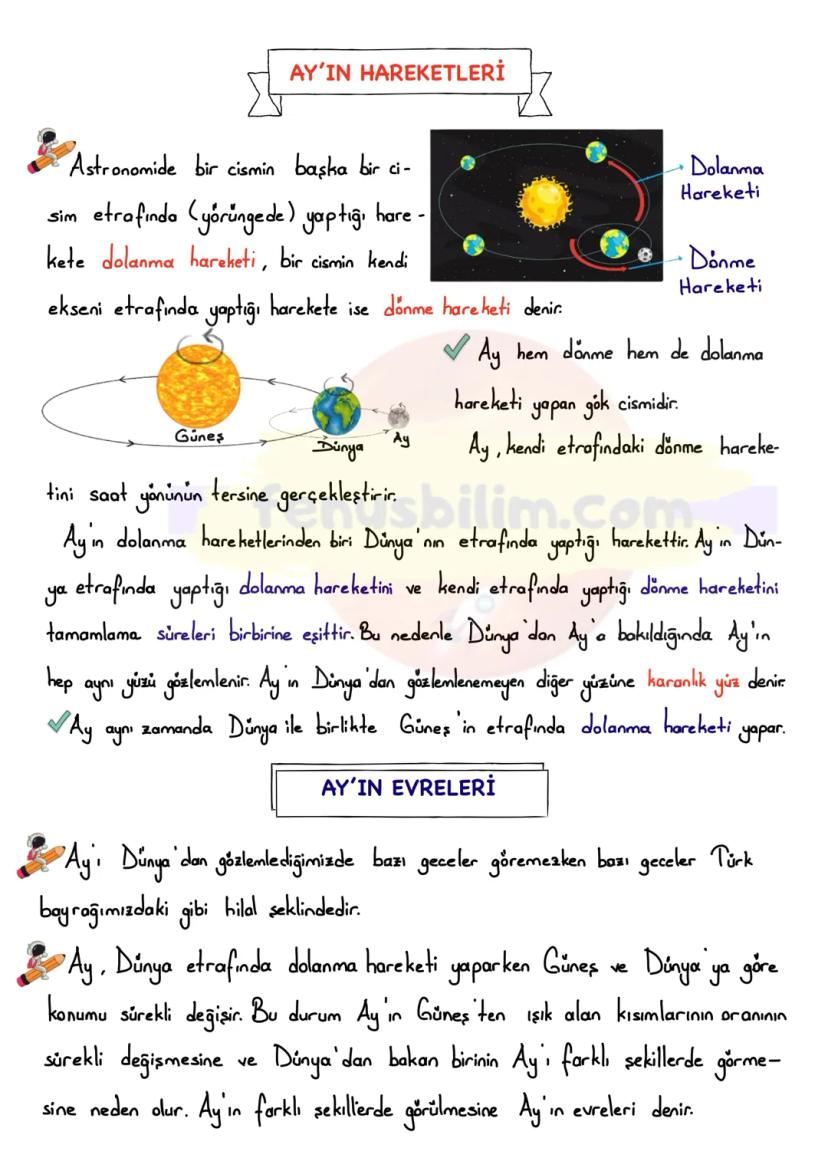 AY'IN HAREKETLERİ
Astronomide bir cismin başka bir ci-
sim etrafında (yörüngede) yaptığı hare-
kete dolanma hareketi, bir cismin kendi
ekseni etrafında yaptığı harekete ise dönme hareketi denir.
Dolanma
Hareketi
Dönme
Hareketi
Güneş
Dünya
Ay
Ay hem dönme hem de dolanma
hareketi yapan gök cismidir.
Ay, kendi etrafındaki dönme hareke-
tini saat yönünün tersine gerçekleştirir.
fenusbilim.com
Ay'ın dolanma hareketlerinden biri Dünya'nın etrafında yaptığı harekettir. Ay'ın Dün-
ya etrafında yaptığı dolanma hareketini ve kendi etrafında yaptığı dönme hareketini
tamamlama süreleri birbirine eşittir. Bu nedenle Dünya'dan Ay'a bakıldığında Ay'ın
hep aynı yüzü gözlemlenir. Ay'ın Dünya'dan gözlemlenemeyen diğer yüzüne karanlık yüz denir
Ay aynı zamanda Dünya ile birlikte Güneş'in etrafında dolanma hareketi yapar.
AY'IN EVRELERİ
Ay'ı Dünya'dan gözlemlediğimizde bazı geceler göremezken bazı geceler Türk
bayrağımızdaki gibi hilal şeklindedir.
Ay, Dünya etrafında dolanma hareketi yaparken Güneş ve Dünya'ya göre
konumu sürekli değişir. Bu durum Ay'ın Güneş'ten ışık alan kısımlarının oranının
sürekli değişmesine ve Dünya'dan bakan birinin Ay'ı farklı şekillerde görme-
sine neden olur. Ay'ın farklı şekillerde görülmesine Ay'ın evreleri denir.